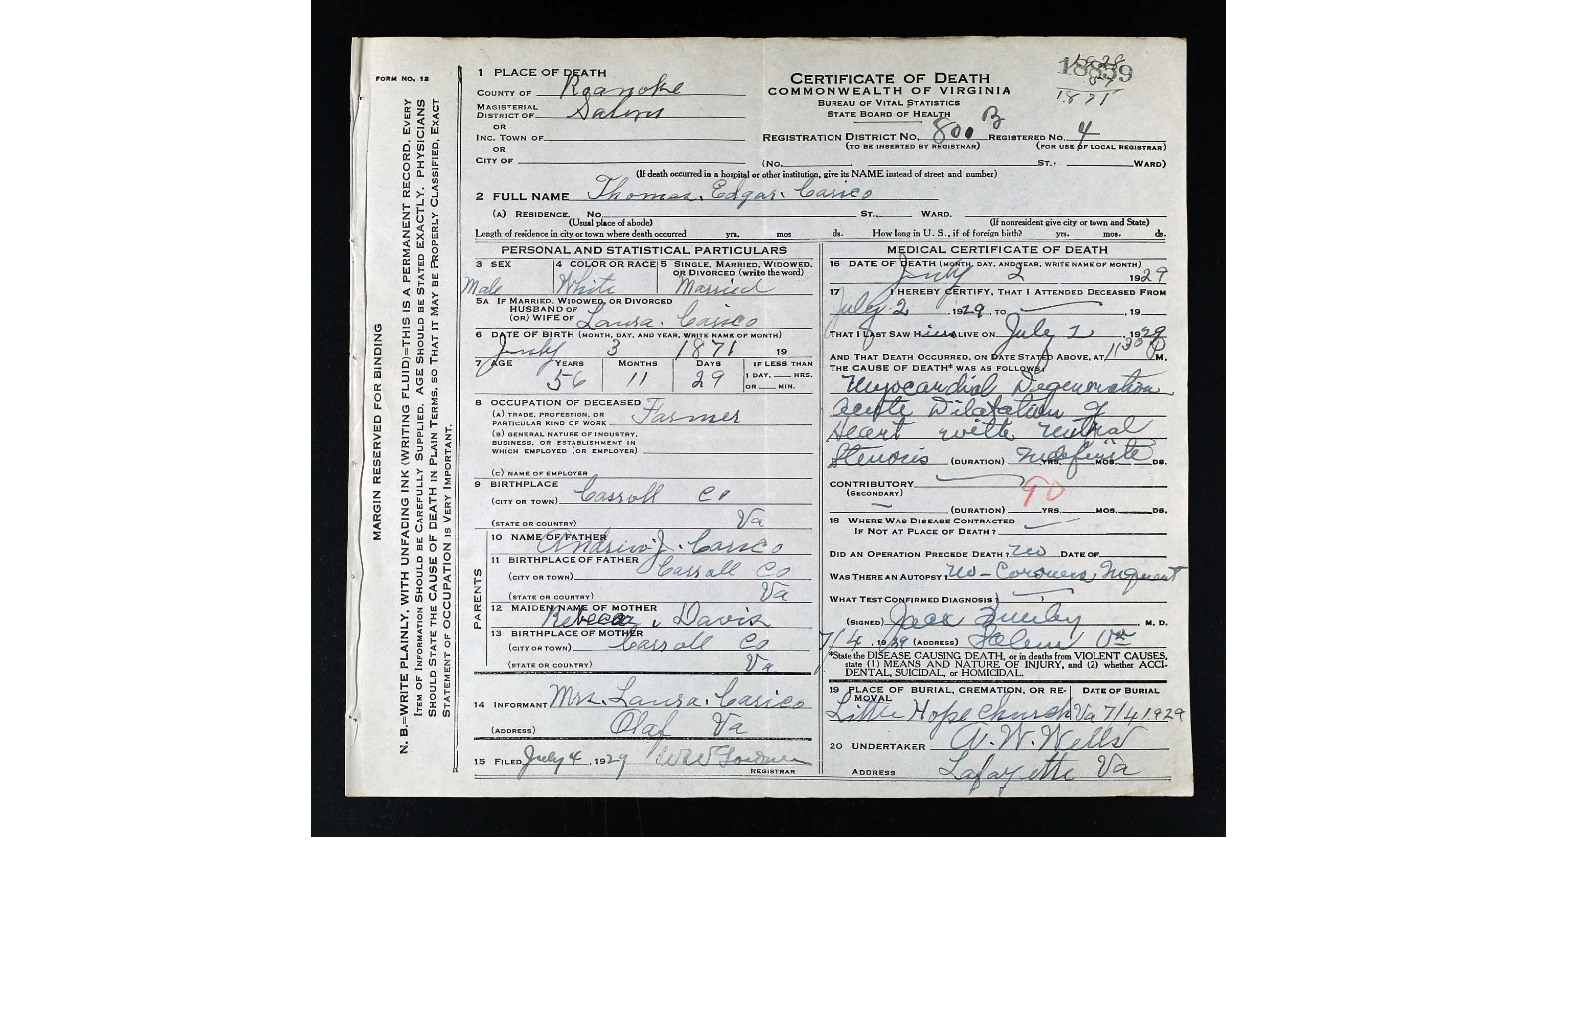 FORM NO. 12
MARGIN RESERVED FOR BINDING
N. B.=WRITE PLAINLY, WITH UNFADING INK (WRITING FLUID)=THIS IS A PERMANENT RECORD. EVERY
ITEM OF INFORMATION SHOULD BE CAREFULLY SUPPLIED. AGE SHOULD BE STATED EXACTLY. PHYSICIANS
SHOULD STATE THE CAUSE OF DEATH IN PLAIN TERMS, SO THAT IT MAY BE PROPERLY CLASSIFIED. EXACT
STATEMENT OF OCCUPATION IS VERY IMPORTANT.
1 PLACE OF DEATH
COUNTY OF Roanoke
MAGISTERIAL
DISTRICT OF Salem
OR
INC. TOWN OF
OR
CITY OF
CERTIFICATE OF DEATH
COMMONWEALTH OF VIRGINIA
BUREAU OF VITAL STATISTICS
STATE BOARD OF HEALTH
18859
1871
REGISTRATION DISTRICT NO. 800 B REGISTERED NO. 4
(TO BE INSERTED BY REGISTRAR) (FOR USE OF LOCAL REGISTRAR)
(No. ST.. WARD)
(If death occurred in a hospital or other institution, give its NAME instead of street and number)
2 FULL NAME Thomas. Edgar. Carico
(A) RESIDENCE, No. ST., WARD.
(Usual place of abode) (If nonresident give city or town and State)
Length of residence in city or town where death occurred yrs. mos ds. How long in U. S., if of foreign birth? yrs. mos. ds.
PERSONAL AND STATISTICAL PARTICULARS
3 SEX 4 COLOR OR RACE 5 SINGLE, MARRIED, WIDOWED.
OR DIVORCED (write the word)
Male White Married
5A IF MARRIED, WIDOWED, OR DIVORCED
HUSBAND OF
(OR) WIFE OF Laura. Carico
6 DATE OF BIRTH (MONTH, DAY, AND YEAR, WRITE NAME OF MONTH)
July 3 1871 19
7 AGE YEARS MONTHS DAYS IF LESS THAN
1 DAY, HRS.
OR MIN.
56 11 29
8 OCCUPATION OF DECEASED
(A) TRADE, PROFESSION, OR
PARTICULAR KIND OF WORK Farmer
(B) GENERAL NATURE OF INDUSTRY,
BUSINESS, OR ESTABLISHMENT IN
WHICH EMPLOYED (OR EMPLOYER)
(C) NAME OF EMPLOYER
9 BIRTHPLACE
(CITY OR TOWN) Carroll Co
(STATE OR COUNTRY) Va
PARENTS
10 NAME OF FATHER Andrew J. Carico
11 BIRTHPLACE OF FATHER
(CITY OR TOWN) Carroll Co
(STATE OR COUNTRY) Va
12 MAIDEN NAME OF MOTHER
Rebecca Davis
13 BIRTHPLACE OF MOTHER
(CITY OR TOWN) Carroll Co
(STATE OR COUNTRY) Va
14 INFORMANT Mrs. Laura. Carico
(ADDRESS) Olaf Va
15 FILED July 4, 1929
REGISTRAR
MEDICAL CERTIFICATE OF DEATH
16 DATE OF DEATH (MONTH, DAY, AND YEAR, WRITE NAME OF MONTH)
July 2 1929
17 I HEREBY CERTIFY, THAT I ATTENDED DECEASED FROM
July 2, 1929, TO 19
THAT I LAST SAW HIM ALIVE ON July 2 1929
AND THAT DEATH OCCURRED, ON DATE STATED ABOVE, AT 11 30 P M.
THE CAUSE OF DEATH* WAS AS FOLLOWS:
Myocardial Degeneration
acute Dilatation of
Heart with mitral
Stenosis (DURATION) Indefinite YRS. MOS. DS.
CONTRIBUTORY
(SECONDARY) 90
(DURATION) YRS. MOS. DS.
18 WHERE WAS DISEASE CONTRACTED
IF NOT AT PLACE OF DEATH?
DID AN OPERATION PRECEDE DEATH? no DATE OF
WAS THERE AN AUTOPSY? no - Coroners Inquest
WHAT TEST CONFIRMED DIAGNOSIS?
(SIGNED) Jack M. D.
7/4, 1929 (ADDRESS) Salem Va
*State the DISEASE CAUSING DEATH, or in deaths from VIOLENT CAUSES,
state (1) MEANS AND NATURE OF INJURY, and (2) whether ACCI-
DENTAL, SUICIDAL, or HOMICIDAL.
19 PLACE OF BURIAL, CREMATION, OR RE- DATE OF BURIAL
MOVAL
Little Hope Church Va 7/4 1929
20 UNDERTAKER A. W. Wells
ADDRESS Lafayette Va